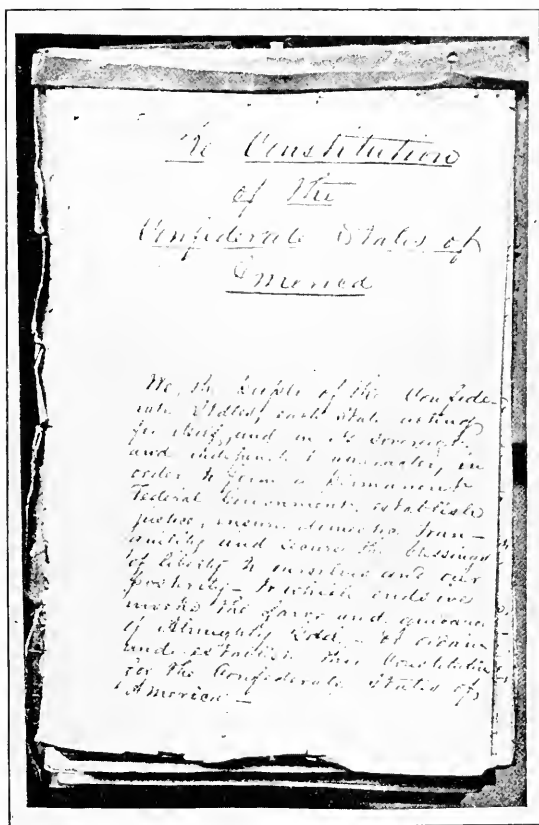 The Constitution
of the
Confederate States of
America
We, the People of the Confede-
rate States, each State acting
for itself, and in its sovereign
and independent character, in
order to form a Permanent
Federal Government, establish
justice, insure domestic tran-
quility and secure the blessings
of liberty to ourselves and our
posterity - to which ends we
invoke the favor and guidance
of Almighty God - do ordain
and establish this Constitution
for the Confederate States of
America -